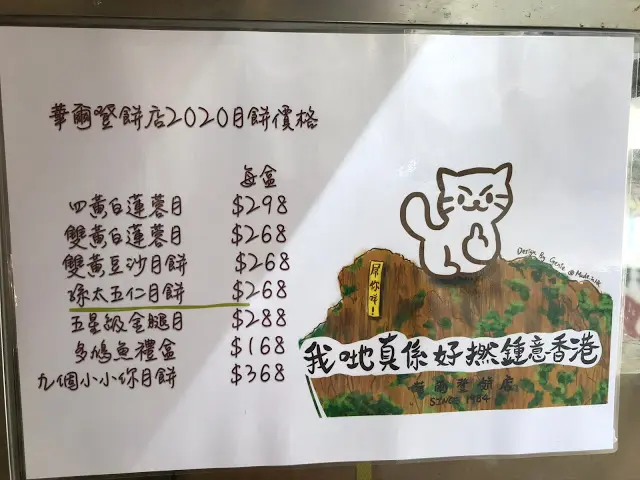 華爾登餅店2020月餅價格
每盒
四黃白蓮蓉月 $298
雙黃白蓮蓉月 $268
雙黃豆沙月餅 $268
孫太五仁月餅 $268
五星級金腿月 $288
多鳩魚禮盒 $168
九個小小你月餅 $368
Design By Genie @
屌你咩!
我哋真係好撚鍾意香港
華爾登餅店
SINCE 1984